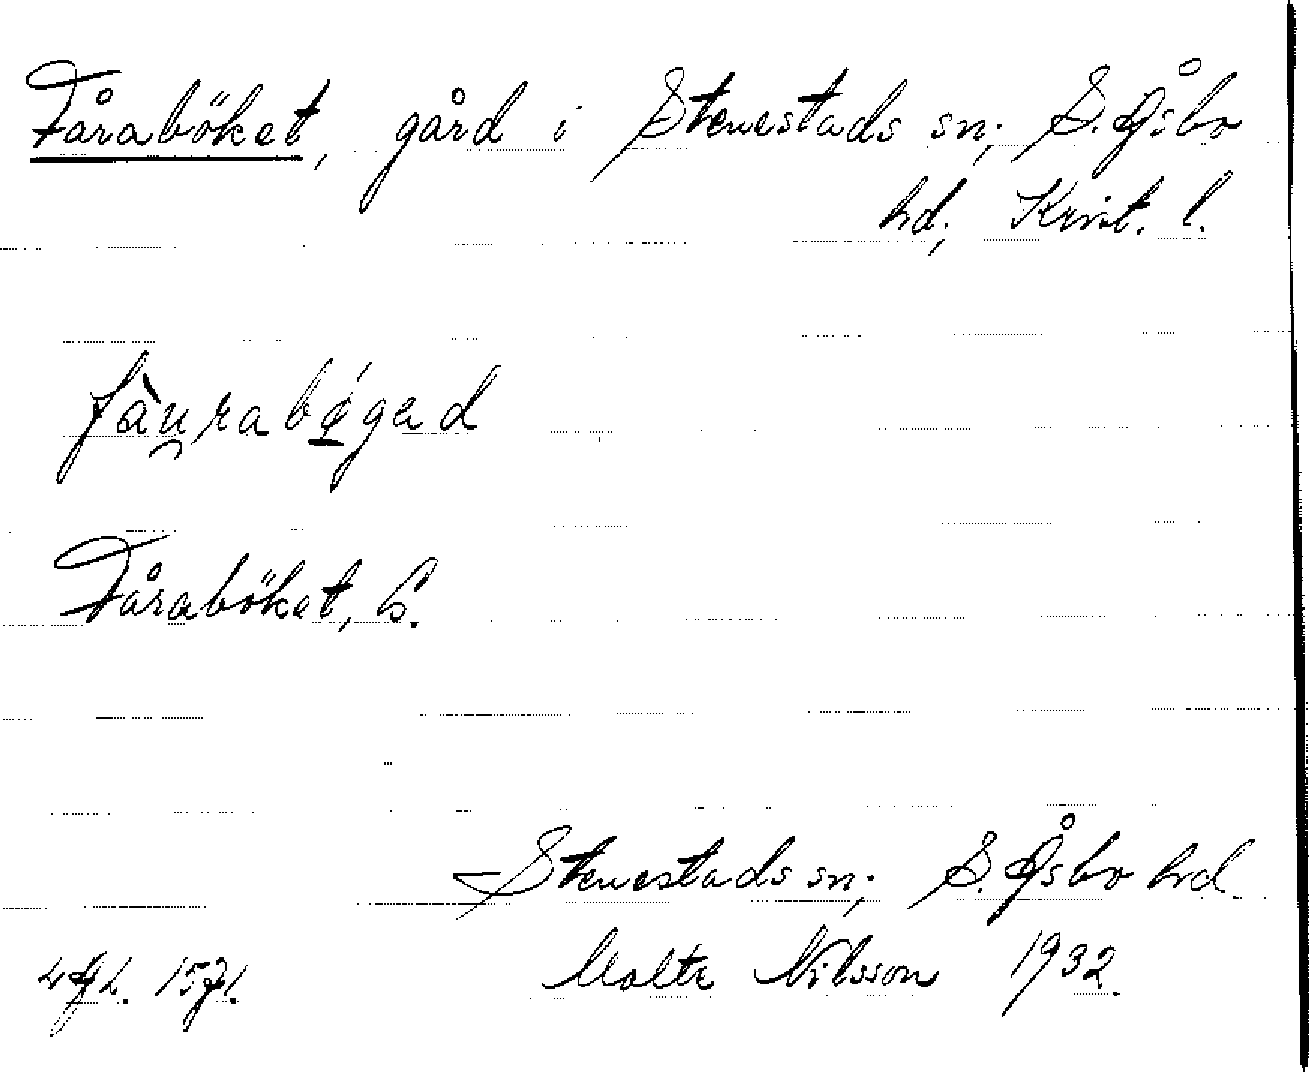 Fåraböket, gård i Stenestads sn; S. Åsbo
hd; Krist. l.
Fåraböket, S.
Stenestads sn; S. Åsbo hd
Malte Nilsson 1932.